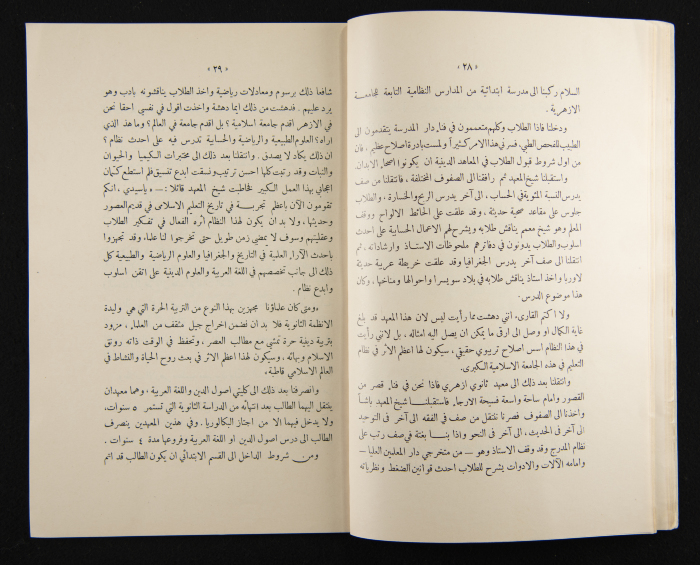 « ٢٨ »
السلام ركبنا الى مدرسة ابتدائية من المدارس النظامية التابعة للجامعة
الازهرية .
ودخلنا فاذا الطلاب وكلهم متعممون في فناء دار المدرسة يتقدمون الى
الطبيب للفحص الطبي، فسرني هذا الامر كثيراً ولمست بادرة اصلاح عظيم . فان
من اول شروط قبول الطلاب في المعاهد الدينية ان يكونوا اصحاء الابدان.
واستقبلنا شيخ المعهد ثم رافقنا الى الصفوف المختلفة ، فانتقلنا من صف
يدرس النسبة المئوية في الحساب ، الى آخر يدرس الربح والخسارة . والطلاب
جلوس على مقاعد صحية حديثة ، وقد علقت على الحائط الالواح ووقف
المعلم وهو شيخ معمم يناقش طلابه ويشرح لهم الاعمال الحسابية على احدث
اسلوب والطلاب يدونون في دفاترهم ملحوظات الاستاذ وارشاداته ، ثم
انتقلنا الى صف آخر يدرس الجغرافيا وقد علقت خريطة عربية حديثة
لاوربا واخذ استاذ يناقش طلابه في بلاد سويسرا واحوالها ومناخها ، وكان
هذا موضوع الدرس.
ولا اكتم القارىء انني دهشت مما رأيت ليس لان هذا المعهد قد بلغ
غاية الكمال او وصل الى ارقى ما يمكن ان يصل اليه امثاله ، بل لانني رأيت
في هذا النظام اسس اصلاح تربيوي حقيقي ، سيكون لها اعظم الاثر في نظام
التعليم في هذه الجامعة الاسلامية الكبرى.
وانتقلنا بعد ذلك الى معهد ثانوي ازهري فاذا نحن في فناء قصر من
القصور وامام ساحة واسعة فسيحة الارجاء فاستقبلنا شيخ المعهد باشاً
واخذنا الى الصفوف فصرنا ننتقل من صف في الفقه الى آخر في التوحيد
الى آخر في الحديث، الى آخر في النحو واذا بنا بغتة في صف رتب على
نظام المدرج وقد وقف الاستاذ وهو — من متخرجي دار المعلمين العليا —
وامامه الآلات والادوات يشرح للطلاب احدث قوانين الضغط ونظرياته
« ٢٩ »
شافعا ذلك برسوم ومعادلات رياضية واخذ الطلاب يناقشونه بادب وهو
يرد عليهم . فدهشت من ذلك ايما دهشة واخذت اقول في نفسي احقا نحن
في الازهر اقدم جامعة اسلامية ؟ بل اقدم جامعة في العالم ؟ وما هذا الذي
اراه ؟ العلوم الطبيعية والرياضية والحسابية تدرس فيه على احدث نظام ؟
ان ذلك يكاد لا يصدق . وانتقلنا بعد ذلك الى مختبرات الكيميا والحيوان
والنبات وقد رتبت كلها احسن ترتيب ونسقت ابدع تنسيق فلم استطع كتمان
اعجابي بهذا العمل الكبير فخاطبت شيخ المعهد قائلا : — ، ياسيدي ، انكم
تقومون الآن باعظم تجربة في تاريخ التعليم الاسلامي في قديم العصور
وحديثها ، ولا بد ان يكون لهذا النظام اثره الفعال في تفكير الطلاب
وعقليتهم وسوف لا تمضي زمن طويل حتى تخرجوا لنا علماء وقد تجهزوا
باحدث الآراء العلمية في التاريخ والجغرافيا والعلوم الرياضية والطبيعية كل
ذلك الى جانب تخصصهم في اللغة العربية والعلوم الدينية على اتقن اسلوب
وابدع نظام .
ومتى كان علماؤنا مجهزين بهذا النوع من التربية الحرة التي هي وليدة
الانظمة الثانوية فلا بد ان نضمن اخراج جيل مثقف من العلماء ، مزود
بتربية دينية حرة تمشي مع مطالب العصر ، وتحتفظ في الوقت ذاته برونق
الاسلام وبهائه . وسيكون لهذا اعظم الاثر في بعث روح الحياة والنشاط في
العالم الاسلامي قاطبة.
وانصرفنا بعد ذلك الى كليتي اصول الدين واللغة العربية . وهما معهدان
ينتقل اليهما الطالب بعد انتهائه من الدراسة الثانوية التي تستمر ٥ سنوات،
ولا يدخل فيهما الا من اجتاز البكالوريا . وفي هذين المعهدين ينصرف
الطالب الى درس اصول الدين او اللغة العربية وفروعها مدة ٤ سنوات .
ومن شروط الداخل الى القسم الابتدائي ان يكون الطالب قد اتم